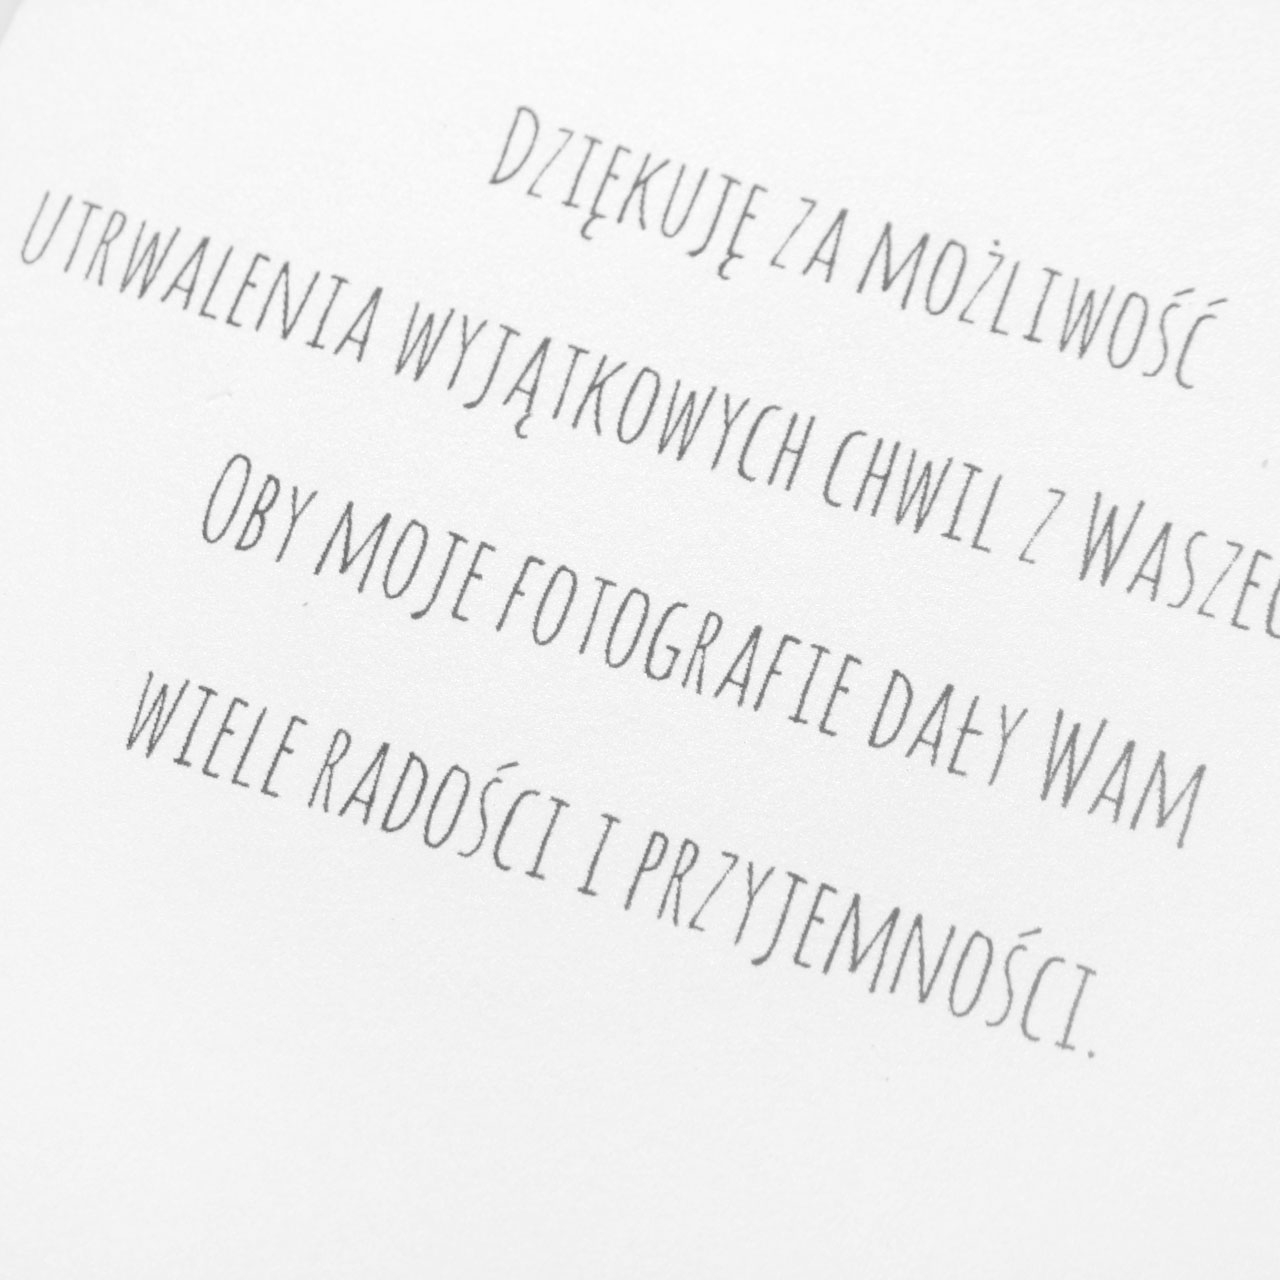 Dziękuję za możliwość
utrwalenia wyjątkowych chwil z
Oby moje fotografie dały Wam
wiele radości i przyjemności.